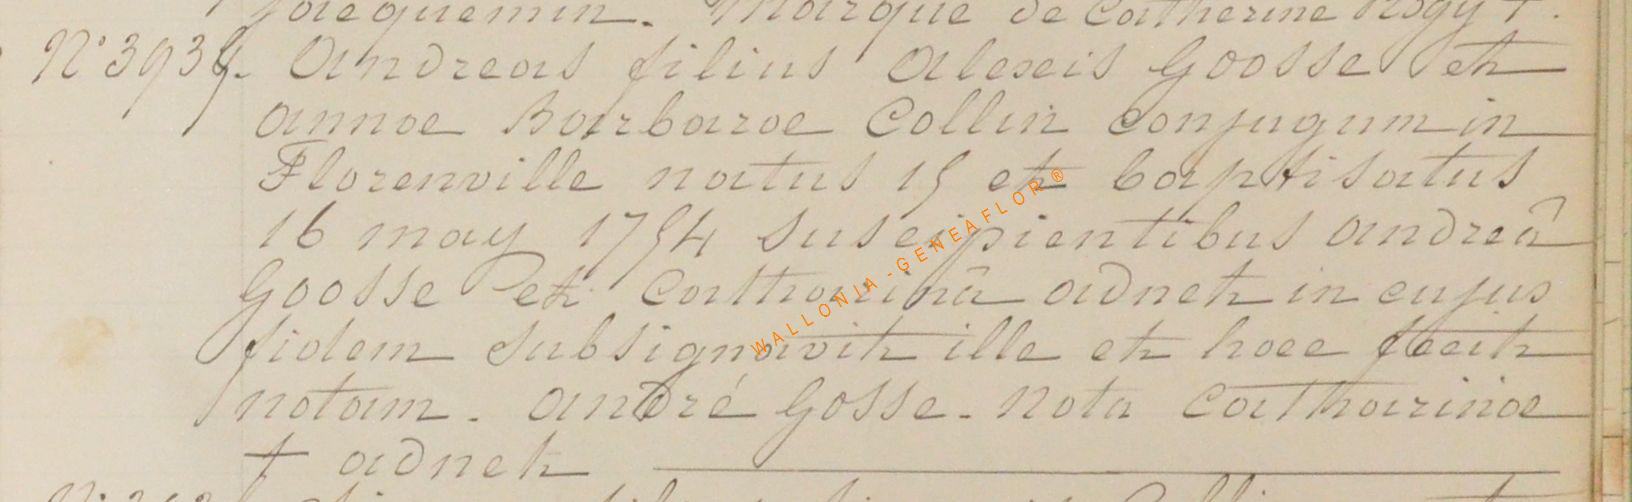 jacquemin. Marque de Catherine Rogy †.
N° 3935. Andreas filius Alexis Goosse et
annae Barbarae Collin conjugum in
Florenville natus 15 et baptisatus
16 may 1754 suscipientibus andreâ
Goosse et Catharinâ adnet in cujus
fidem subsignavit ille et haec fecit
notam. André Gosse. nota Catharinae
† adnet
WALLONIA-GENEAFLOR®